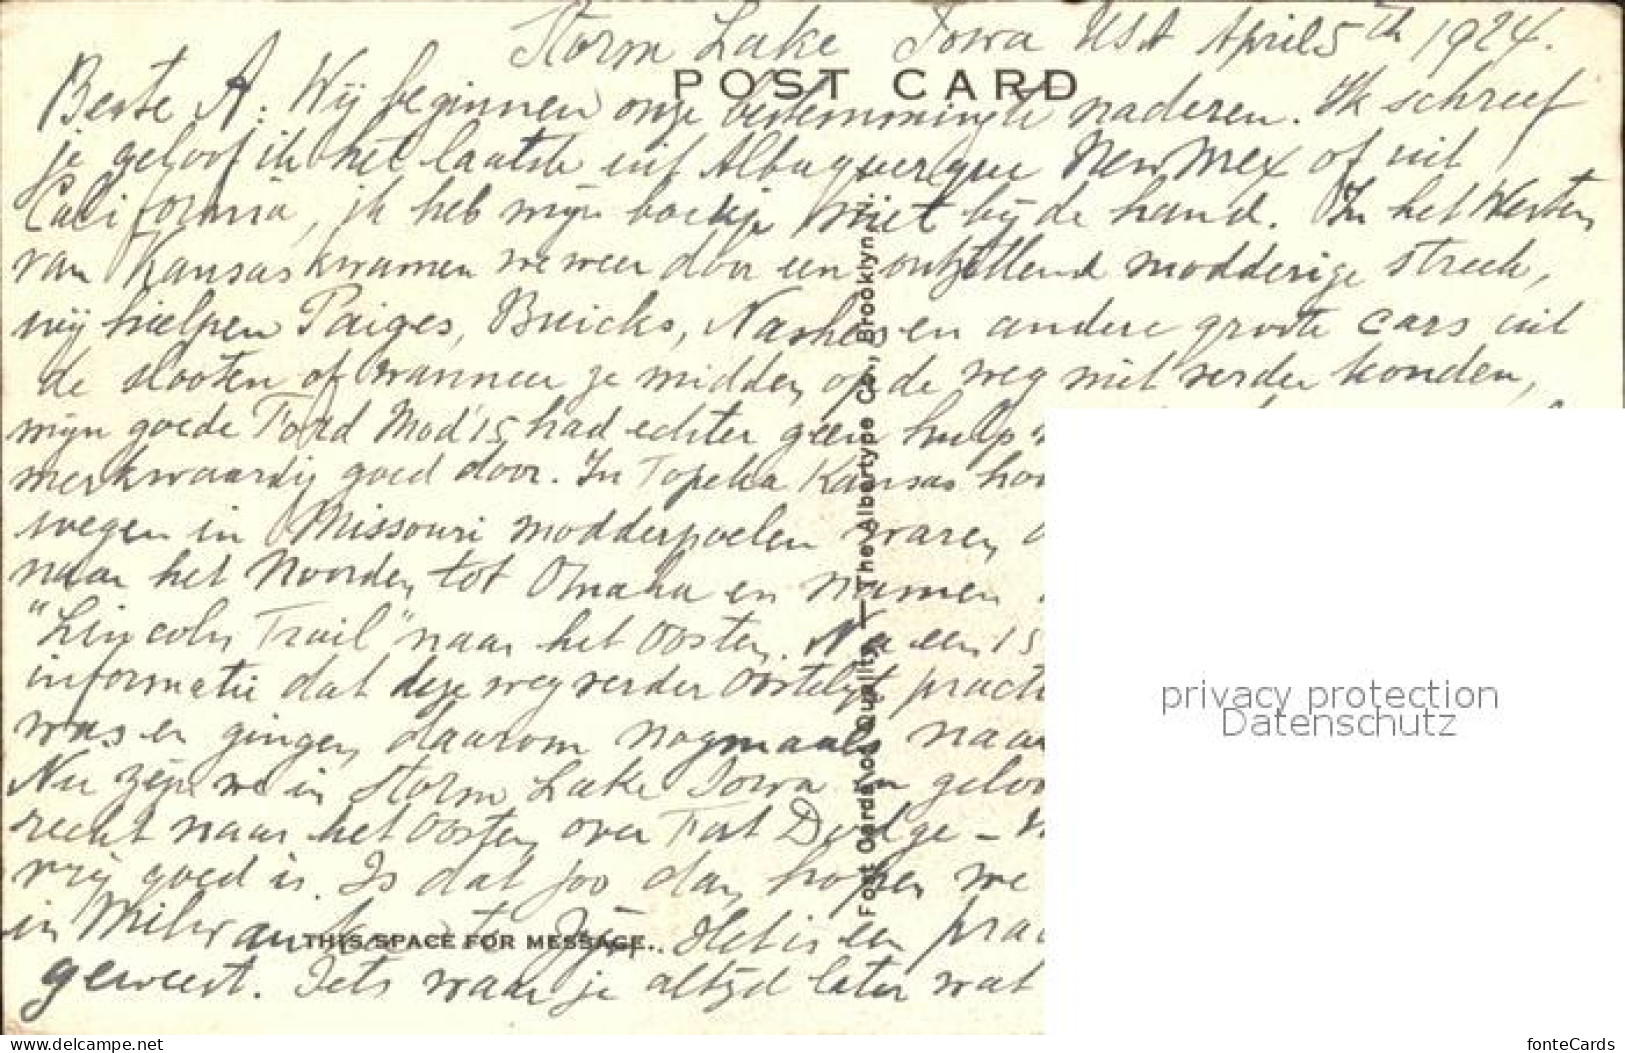 Storm Lake Iowa USA April 5th 1924.
POST CARD
Beste A: Wij beginnen onze bestemming te naderen. Ik schreef
je geloof ik het laatste uit Albuquerque New Mex of uit
California, ik heb mijn boekje niet bij de hand. In het Westen
van Kansas kwamen we weer door een ontzettend modderige streek,
wij hielpen Paiges, Buicks, Nashes en andere groote cars uit
de slooten of wanneer ze midden op de weg niet verder konden,
mijn goede Ford Mod '15 had echter geen hulp
merkwaardig goed door. In Topeka Kansas
wegen in Missouri modderpoelen waren
naar het Noorden tot Omaha en namen
"Lincoln Trail" naar het Oosten. Na een 15
informatie dat deze weg verder Oostelijk
was en gingen daarom nogmaals naar
Nu zijn we in Storm Lake Iowa en
recht naar het Oosten over Fort Dodge -
vrij goed is. Is dat zoo dan hopen we
in Milwaukee te zijn. Het is een
geweest. Iets waar je altijd later wat
THIS SPACE FOR MESSAGE.
Post Cards of Quality. — The Albertype Co., Brooklyn,
privacy protection
Datenschutz
www.delcampe.net
fonteCards